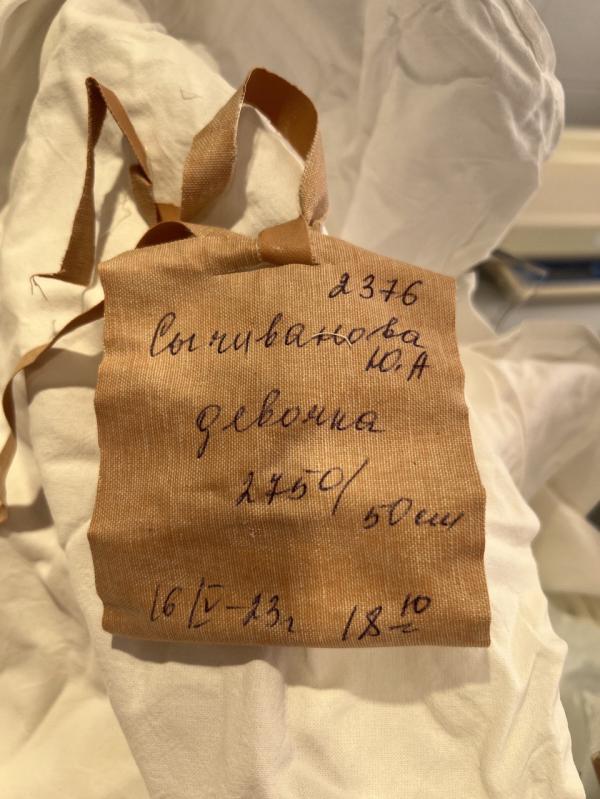 2376
Сычиванова
Ю.А
девочка
2750/
50см
16/V-23г 18 10